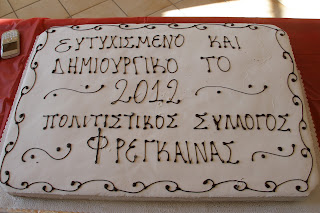 ΕΥΤΥΧΙΣΜΕΝΟ ΚΑΙ
ΔΗΜΙΟΥΡΓΙΚΟ ΤΟ
2012
ΠΟΛΙΤΙΣΤΙΚΟΣ ΣΥΛΛΟΓΟΣ
ΦΡΕΓΚΑΙΝΑΣ